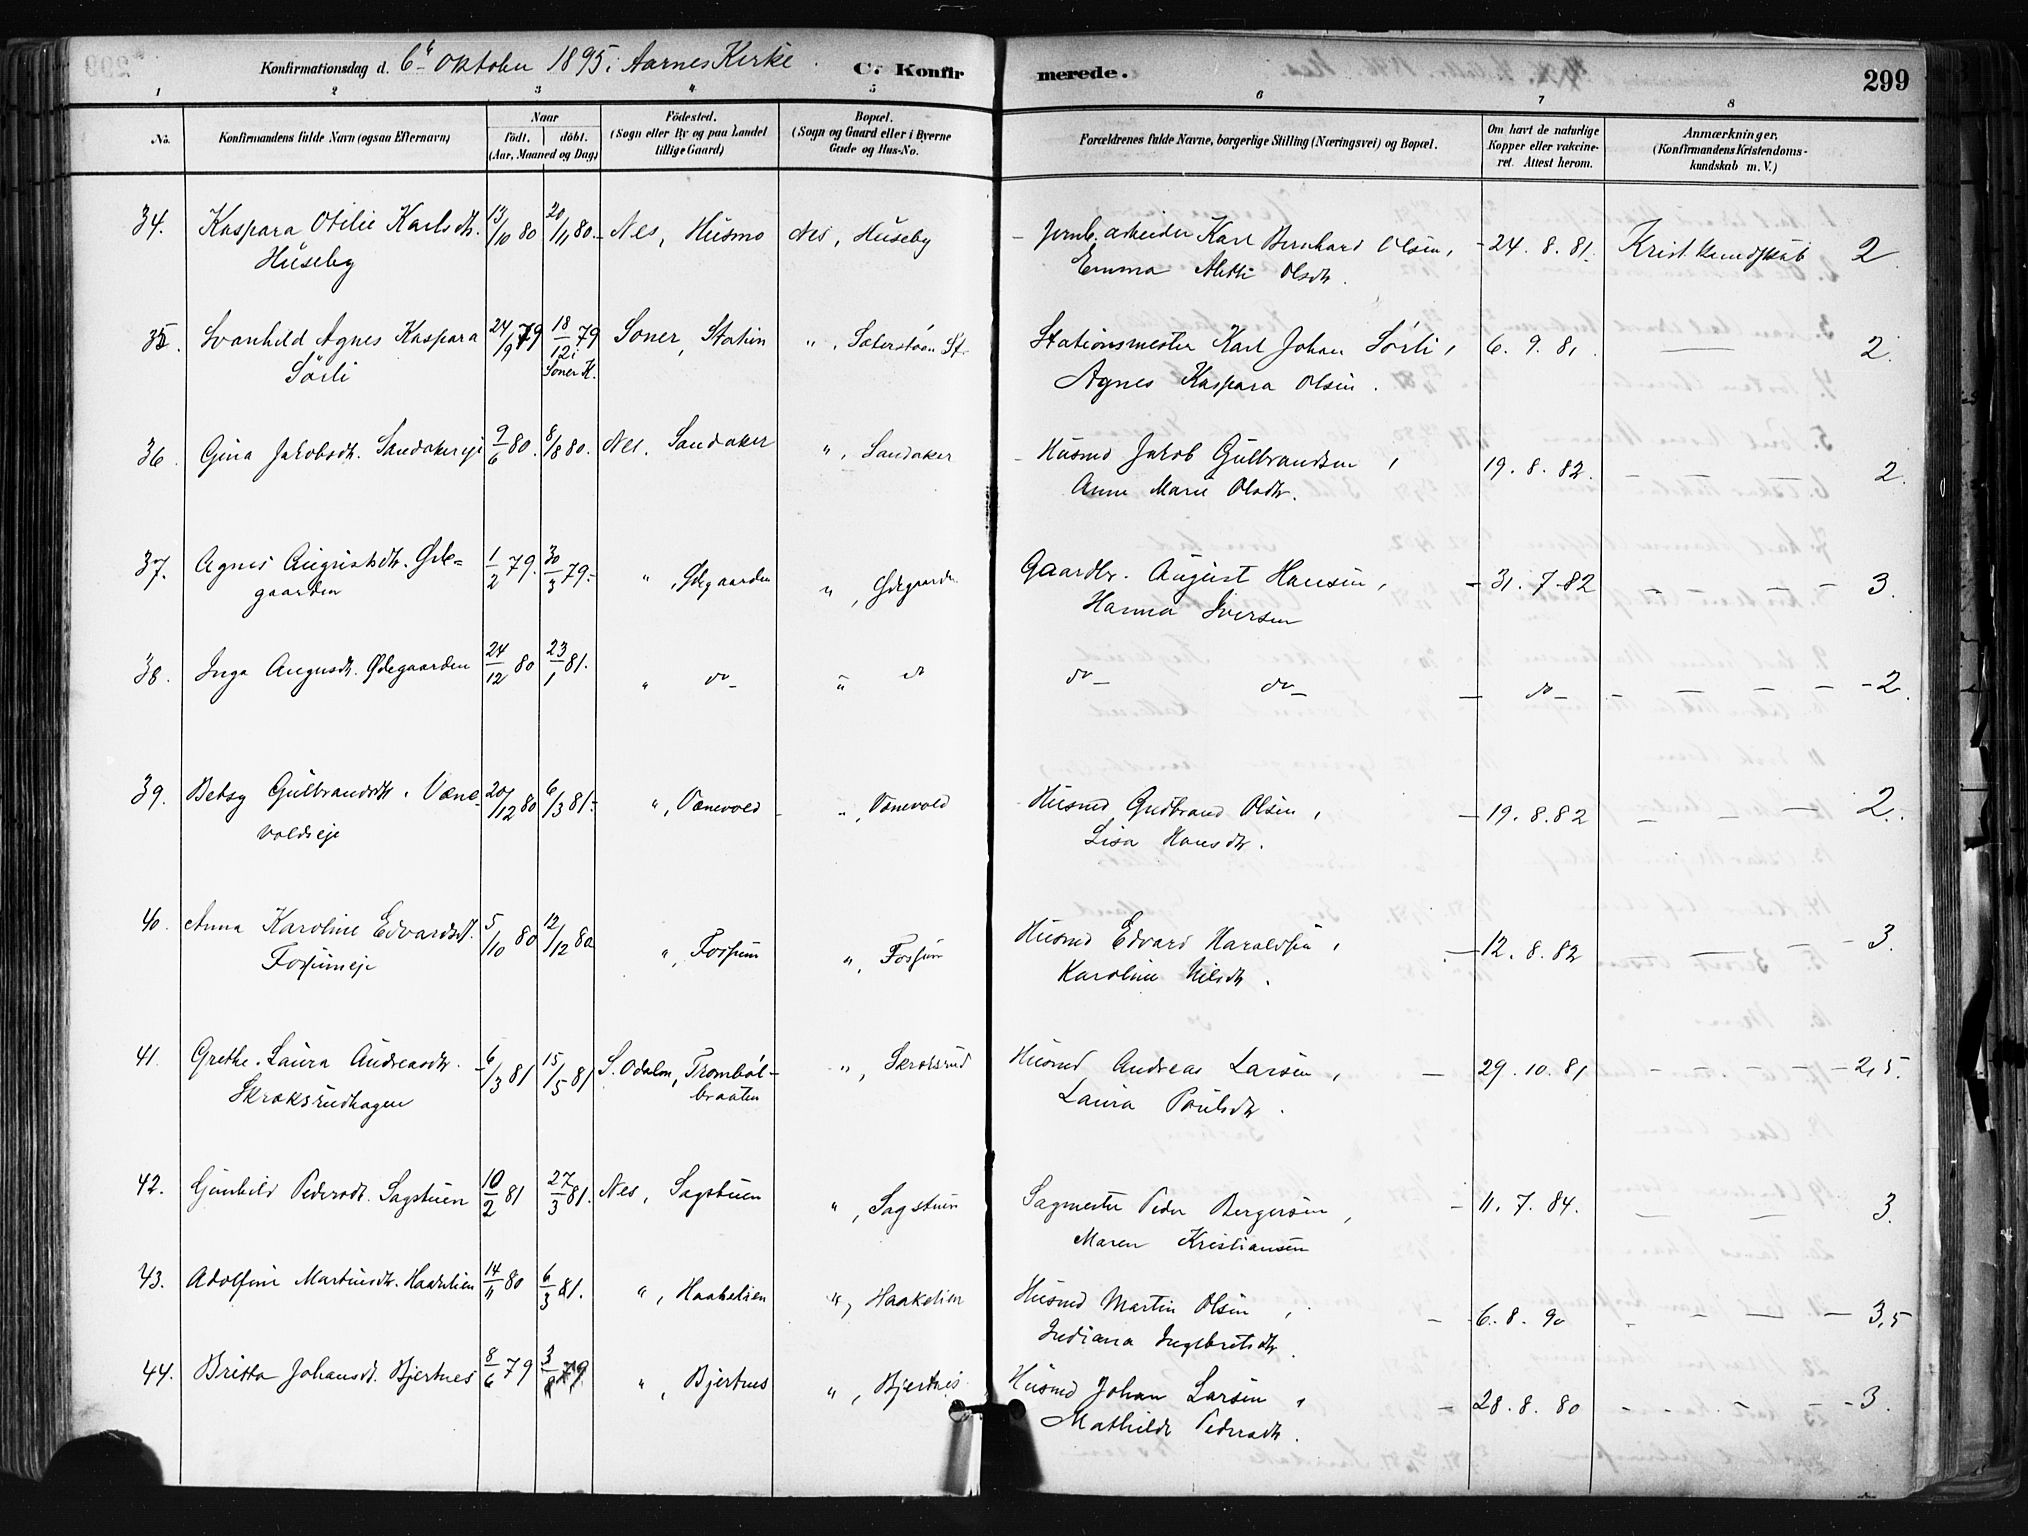 Konfirmationsdag d. 6te Oktober 1895 i Aarnes Kirke. C. Konfirmerede. 299
1 2 3 4 5 6 7 8
No. Konfirmandens fulde Navn (ogsaa Efternavn) Naar født. døbt. (Aar, Maaned og Dag) Fødested. (Sogn eller By og paa Landet tillige Gaard) Bopæl. (Sogn og Gaard eller i Byerne Gade og Hus-No. Forældrenes fulde Navne, borgerlige Stilling (Næringsvei) og Bopæl. Om havt de naturlige Kopper eller vakcineret. Attest herom. Anmærkninger, (Konfirmandens Kristendomskundskab m. V.)
34. Kaspara Otilie Karlsdtr. 13/10 80 20/11 80. Nes, Husmo Nes, Huseby Jernb. arbeider Karl Bernhard Olsen, 24. 8. 81. Krist. kundskab 2.
Huseby Emma Olsdtr.
35. Svanhild Agnes Kaspara 24/9 79 18/12 79 Soner, Station " , Sæterstøen St. Stationsmester Karl Johan Sørli, 6. 9. 81. — 2.
Sørli i Soner K. Agnes Kaspara Olsen.
36. Gina Jakobsdtr. Sandakereje 9/6 80. 8/8 80. Nes. Sandaker " , Sandaker Husmd Jakob Gulbrandsen, 19. 8. 82. — — 2.
Anne Marie Olsdtr.
37. Agnes Augustsdtr. Øde- 1/2 79. 30/3 79. " , Ødegaarden " , Ødegaarden Gaardbr. August Hansen, 31. 7. 82 — — — — 3.
gaarden Hanna Iversen
38. Inga Augusdtr. Ødegaarden 24/12 80 23/1 81. " do " do do do — do — — — — 2.
39. Betsy Gulbrandsdtr. Væne- 20/12 80 6/3 81. " , Vænevold " , Vænevold Husmd Gudbrand Olsen, — 19. 8. 82 — — — 2.
voldseje Lisa Hansdtr.
40. Anna Karoline Edvardsdt. 5/10 80 12/12 80 " , Fossum " , Fossum Husmd Edvard Haraldsen, — 12. 8. 82 — — 3.
Fossumeje Karoline Nilsdtr.
41. Grethe Laura Andreasdtr. 6/3 81 15/5 81 S. Odalen, Trombøl- " , Skroksrud Husmd Andreas Larsen, — 29. 10. 81 — — — — 2,5.
Skroksrudhagen braaten Laura Poulsdtr.
42. Gunhild Pedersdt. Sagstuen 10/2 81 27/3 81. Nes, Sagstuen " , Sagstuen Sagmester Peder Bergersen, — 11. 7. 84. — — 3.
Maren Kristiansen
43. Adolfine Martinsdtr. Haakelien 14/11 80 6/3 81. " , Haakelien " , Haakelien Husmd Martin Olsen, — 6. 8. 90 — — — — 3,5
Indiana Inglbretsdtr.
44. Britta Johansdt. Bjertnes 8/6 79 3/8 79 " , Bjertnes " , Bjertnes Husmd Johan Larsen, — 28. 8. 80 — — — — 3.
Mathilde Pedersdtr.